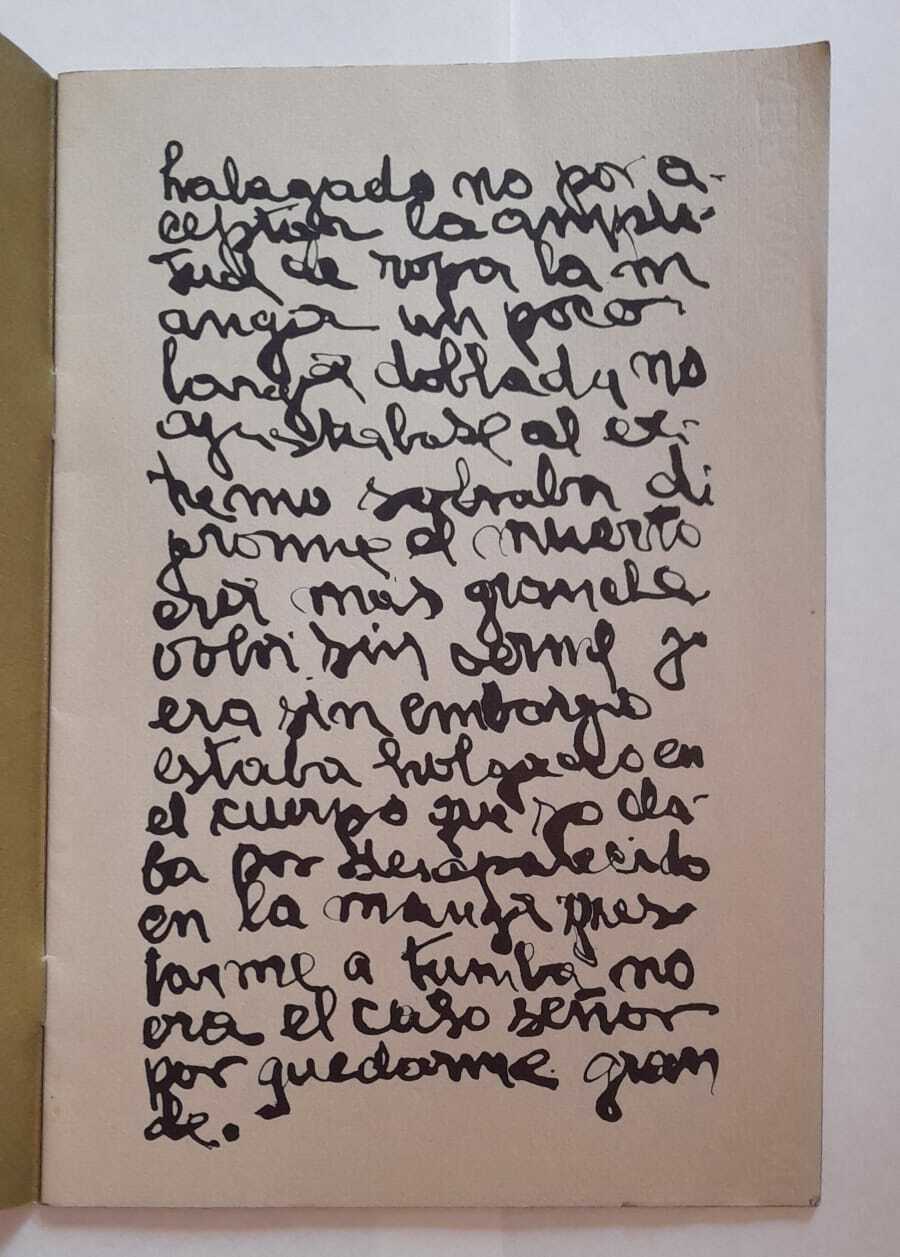 halagado no por a-
ceptar la ampli-
tud de ropa la m
anga un poco
larga doblada y no
ajustabase al ex-
tremo sobraba di
jeronme el muerto
era más grande
volví sin serme yo
era sin embargo
estaba holgado en
el cuerpo que yo da-
ba por desaparecido
en la manga pres
tarme a tumba no
era el caso señor
por quedarme gran
de.